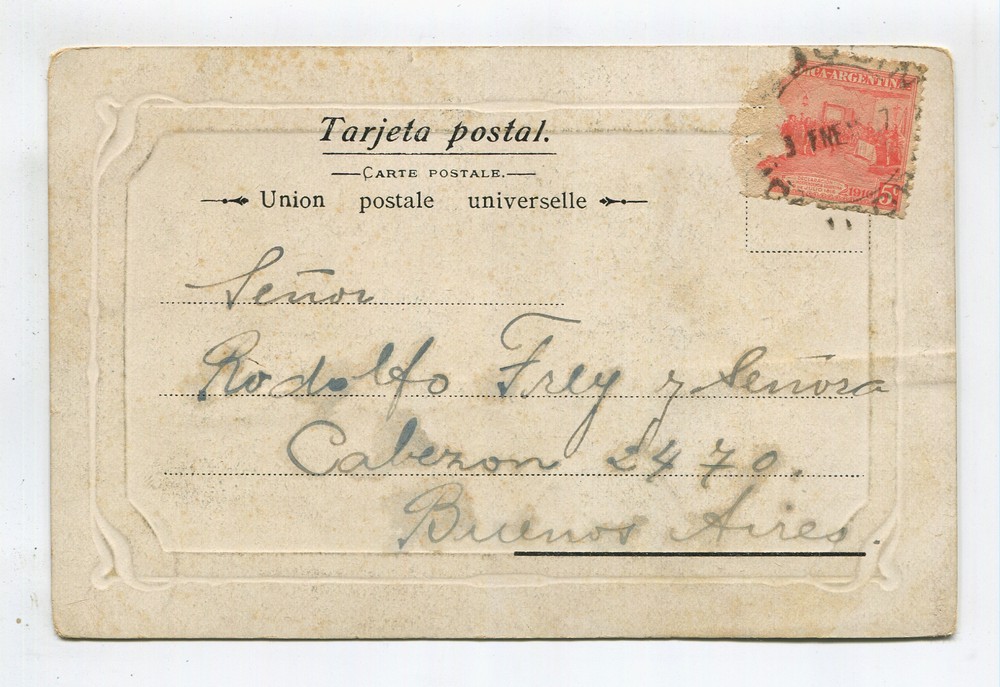 Tarjeta postal.
CARTE POSTALE.
Union postale universelle
ICA ARGENTINA
ENE
1916
5
Señor
Rodolfo Frey y Señora
Cabezon 2470.
Buenos Aires.